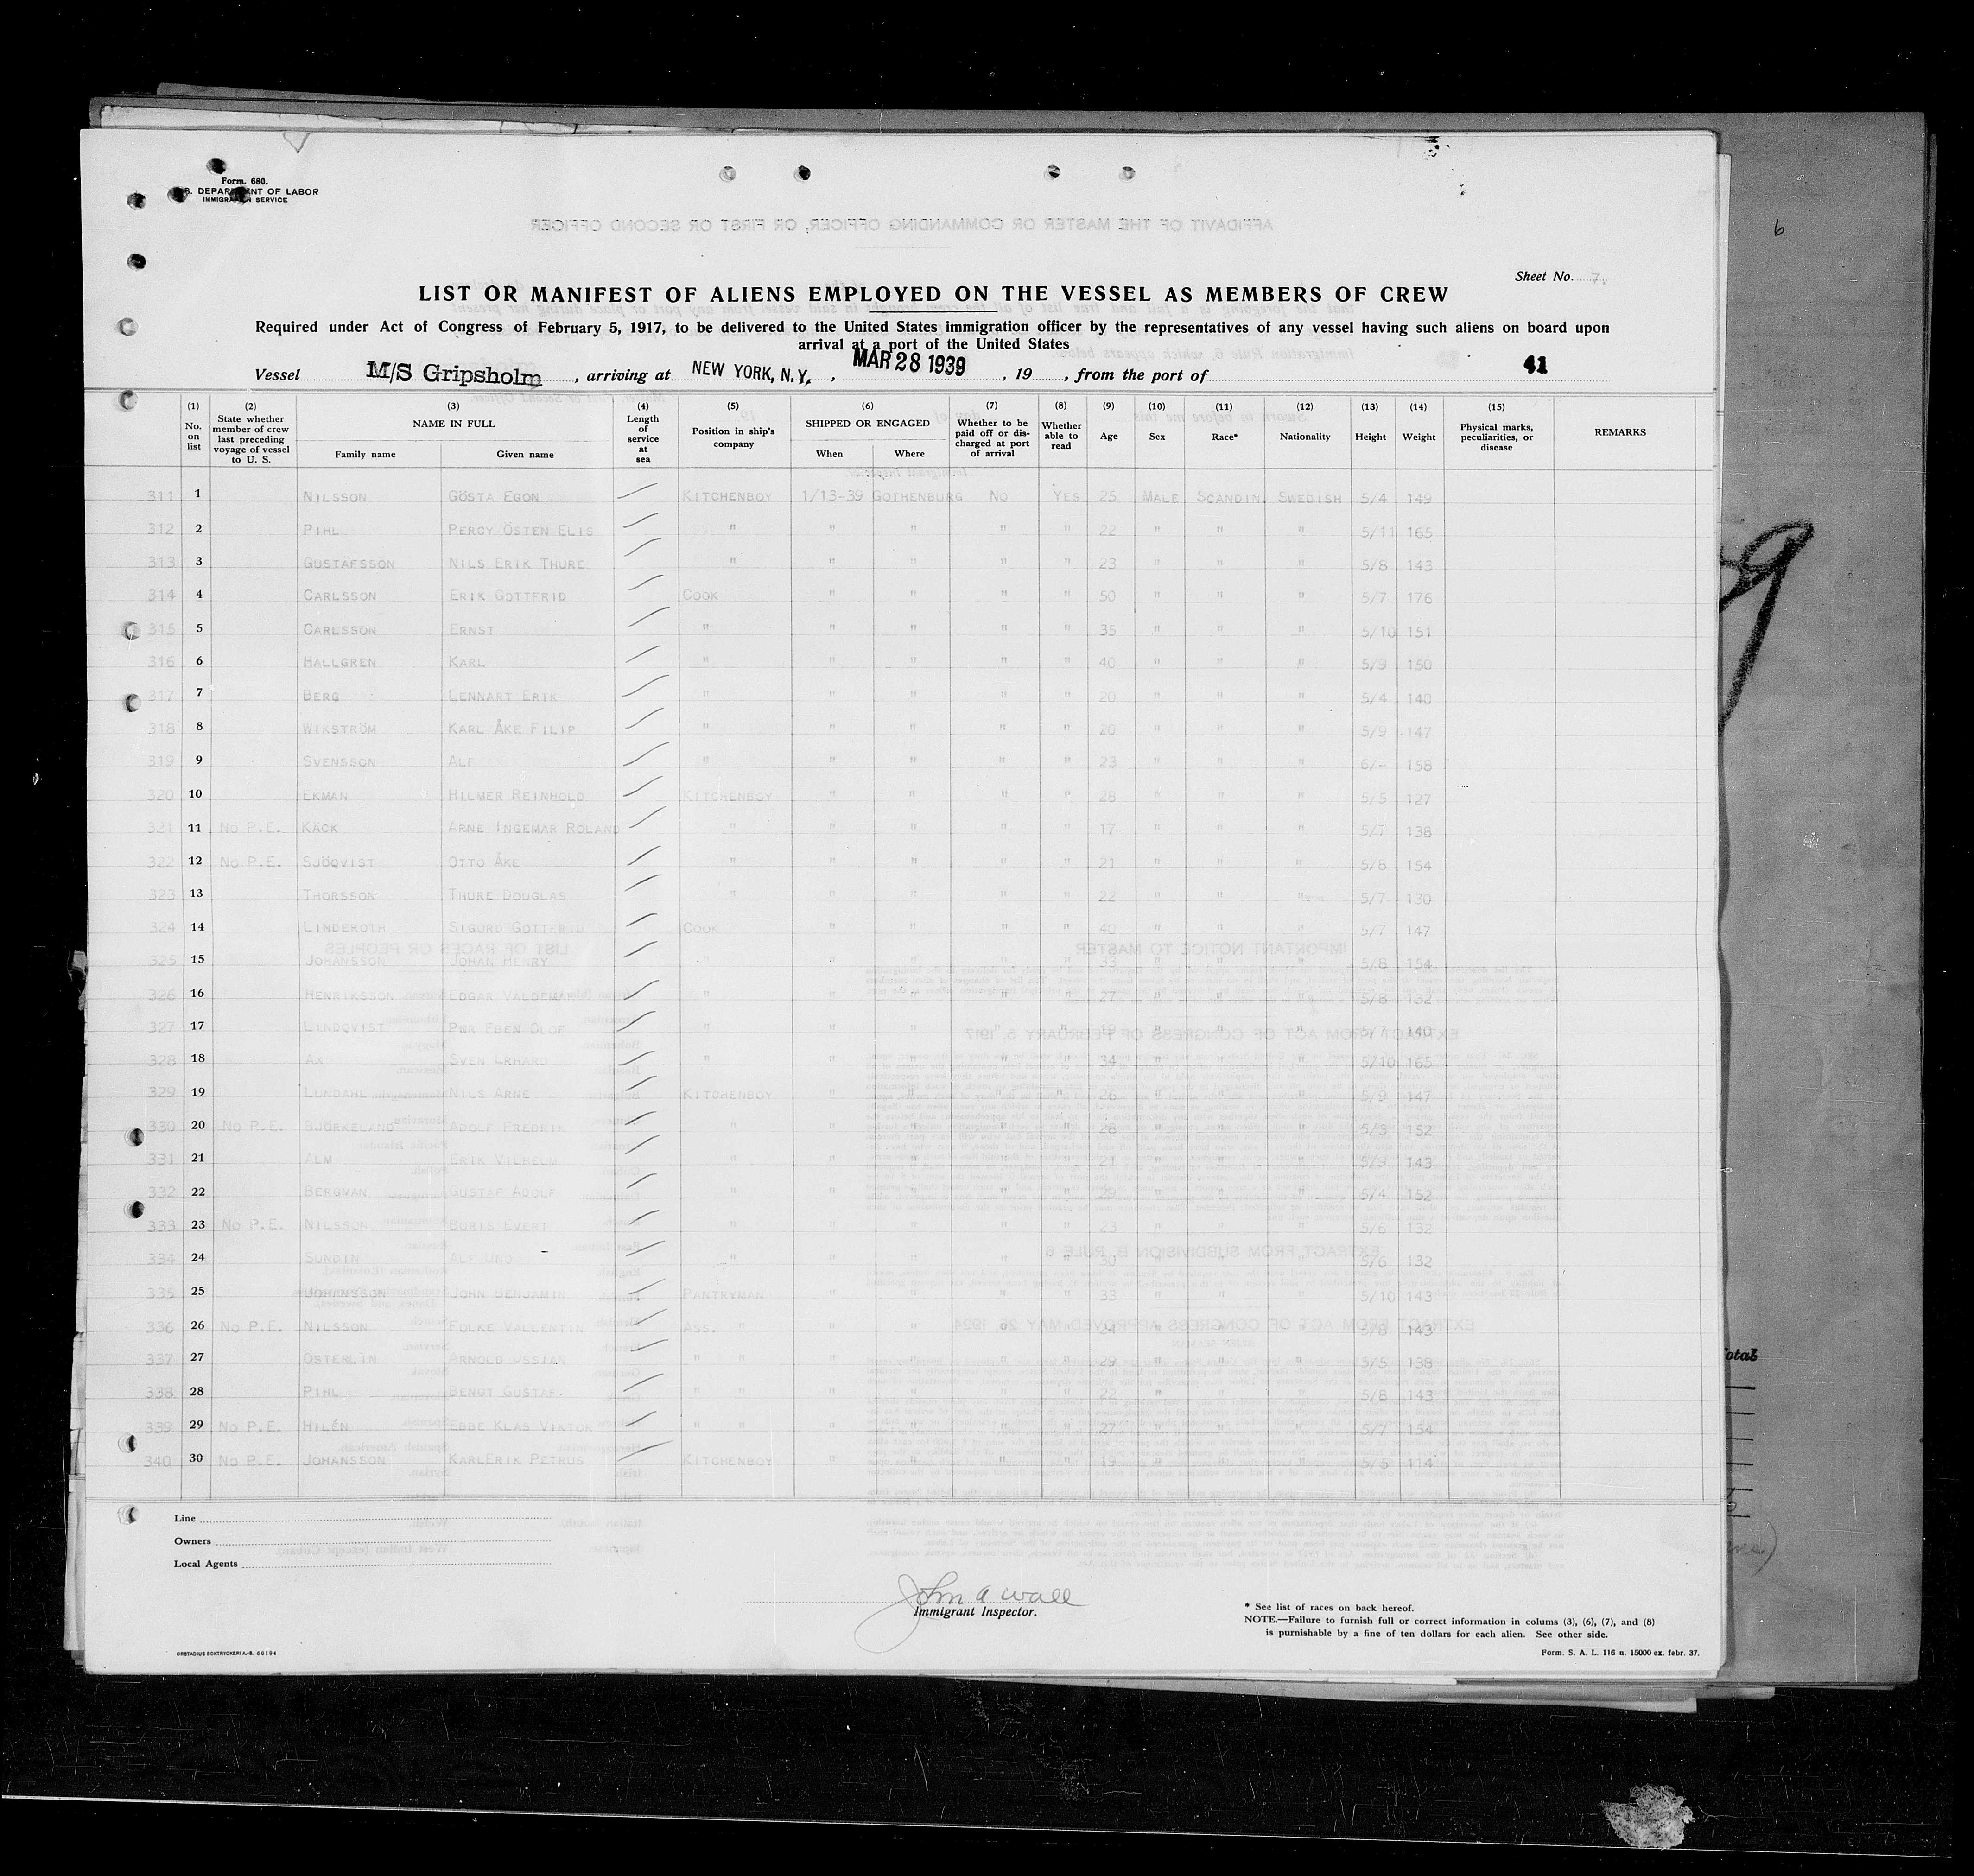 Form. 680.
DEPARTMENT OF LABOR
IMMIGRATION SERVICE
6
Sheet No. 7.
LIST OR MANIFEST OF ALIENS EMPLOYED ON THE VESSEL AS MEMBERS OF CREW
Required under Act of Congress of February 5, 1917, to be delivered to the United States immigration officer by the representatives of any vessel having such aliens on board upon
arrival at a port of the United States
Vessel M/S Gripsholm , arriving at NEW YORK, N. Y. , MAR 28 1939 , 19 , from the port of 41
(1) No. on list (2) State whether member of crew last preceding voyage of vessel to U. S. (3) NAME IN FULL Family name Given name (4) Length of service at sea (5) Position in ship's company (6) SHIPPED OR ENGAGED When Where (7) Whether to be paid off or discharged at port of arrival (8) Whether able to read (9) Age (10) Sex (11) Race* (12) Nationality (13) Height (14) Weight (15) Physical marks, peculiarities, or disease REMARKS
311 1 NILSSON GÖSTA EGON KITCHENBOY 1/13-39 GOTHENBURG NO YES 25 MALE SCANDIN. SWEDISH 5/4 149
312 2 PIHL PERCY ÖSTEN ELIS " " " " " 22 " " " 5/11 165
313 3 GUSTAFSSON NILS ERIK THURE " " " " " 23 " " " 5/8 143
314 4 CARLSSON ERIK GOTTFRID COOK " " " " 50 " " " 5/7 176
315 5 CARLSSON ERNST " " " " " 35 " " " 5/10 151
316 6 HALLGREN KARL " " " " " 40 " " " 5/9 150
317 7 BERG LENNART ERIK " " " " " 20 " " " 5/4 140
318 8 WIKSTRÖM KARL ÅKE FILIP " " " " " 20 " " " 5/9 147
319 9 SVENSSON ALF " " " " " 23 " " " 6/- 158
320 10 EKMAN HILMER REINHOLD KITCHENBOY " " " " 28 " " " 5/5 127
321 11 NO P.E. KÄCK ARNE INGEMAR ROLAND " " " " " 17 " " " 5/7 138
322 12 NO P.E. SJÖQVIST OTTO ÅKE " " " " " 21 " " " 5/8 154
323 13 THORSSON THURE DOUGLAS " " " " " 22 " " " 5/7 130
324 14 LINDEROTH SIGURD GOTTFRID COOK " " " " 40 " " " 5/7 147
325 15 JOHANSSON JOHAN HENRY " " " " " 33 " " " 5/8 154
326 16 HENRIKSSON EDGAR VALDEMAR " " " " " 27 " " " 5/8 132
327 17 LINDQVIST PER EBEN OLOF " " " " " 19 " " " 5/7 140
328 18 AX SVEN ERHARD " " " " " 34 " " " 5/10 165
329 19 LUNDAHL NILS ARNE KITCHENBOY " " " " 26 " " " 5/9 147
330 20 NO P.E. BJÖRKELAND ADOLF FREDRIK " " " " " 28 " " " 5/3 152
331 21 ALM ERIK VILHELM " " " " " 21 " " " 5/9 143
332 22 BERGMAN GUSTAF ADOLF " " " " " 29 " " " 5/4 152
333 23 NO P.E. NILSSON BORIS EVERT " " " " " 23 " " " 5/6 132
334 24 SUNDIN " " " " " 30 " " " 5/6 132
335 25 JOHANSSON JOHN BENJAMIN PANTRYMAN " " " " 33 " " " 5/10 143
336 26 NO P.E. NILSSON FOLKE VALLENTIN ASS. " " " " " 24 " " " 5/8 143
337 27 ÖSTERLIN ARNOLD OSSIAN " " " " " " 29 " " " 5/5 138
338 28 PIHL BENGT GUSTAF " " " " " " 22 " " " 5/8 143
339 29 NO P.E. HILÉN EBBE KLAS VIKTOR " " " " " " 27 " " " 5/7 154
340 30 NO P.E. JOHANSSON KARLERIK PETRUS KITCHENBOY " " " " 19 " " " 5/5 114
Line
Owners
Local Agents
John A Wall
Immigrant Inspector.
* See list of races on back hereof.
NOTE.—Failure to furnish full or correct information in colums (3), (6), (7), and (8)
is purnishable by a fine of ten dollars for each alien. See other side.
ORSTADIUS BOKTRYCKERI A.-B. 66194
Form. S. A. L. 116 n. 15000 ex. febr. 37.